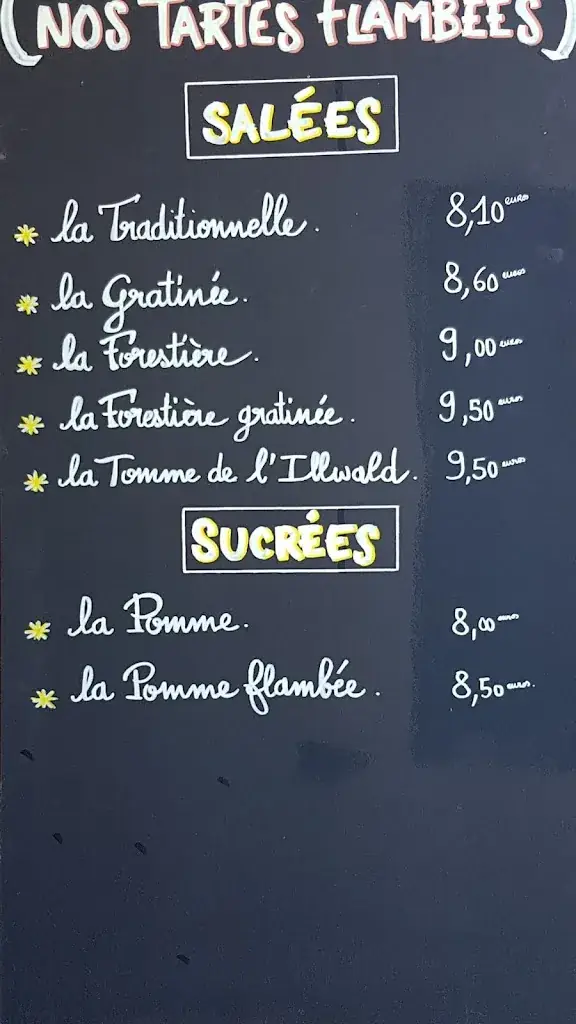 (NOS TARTES FLAMBÉES)
SALÉES
la Traditionnelle. 8,10 euros
la Gratinée. 8,60 euros
la Forestière. 9,00 euros
la Forestière gratinée. 9,50 euros
la Tomme de l'Illwald. 9,50 euros
SUCRÉES
la Pomme. 8,00 euros
la Pomme flambée. 8,50 euros.